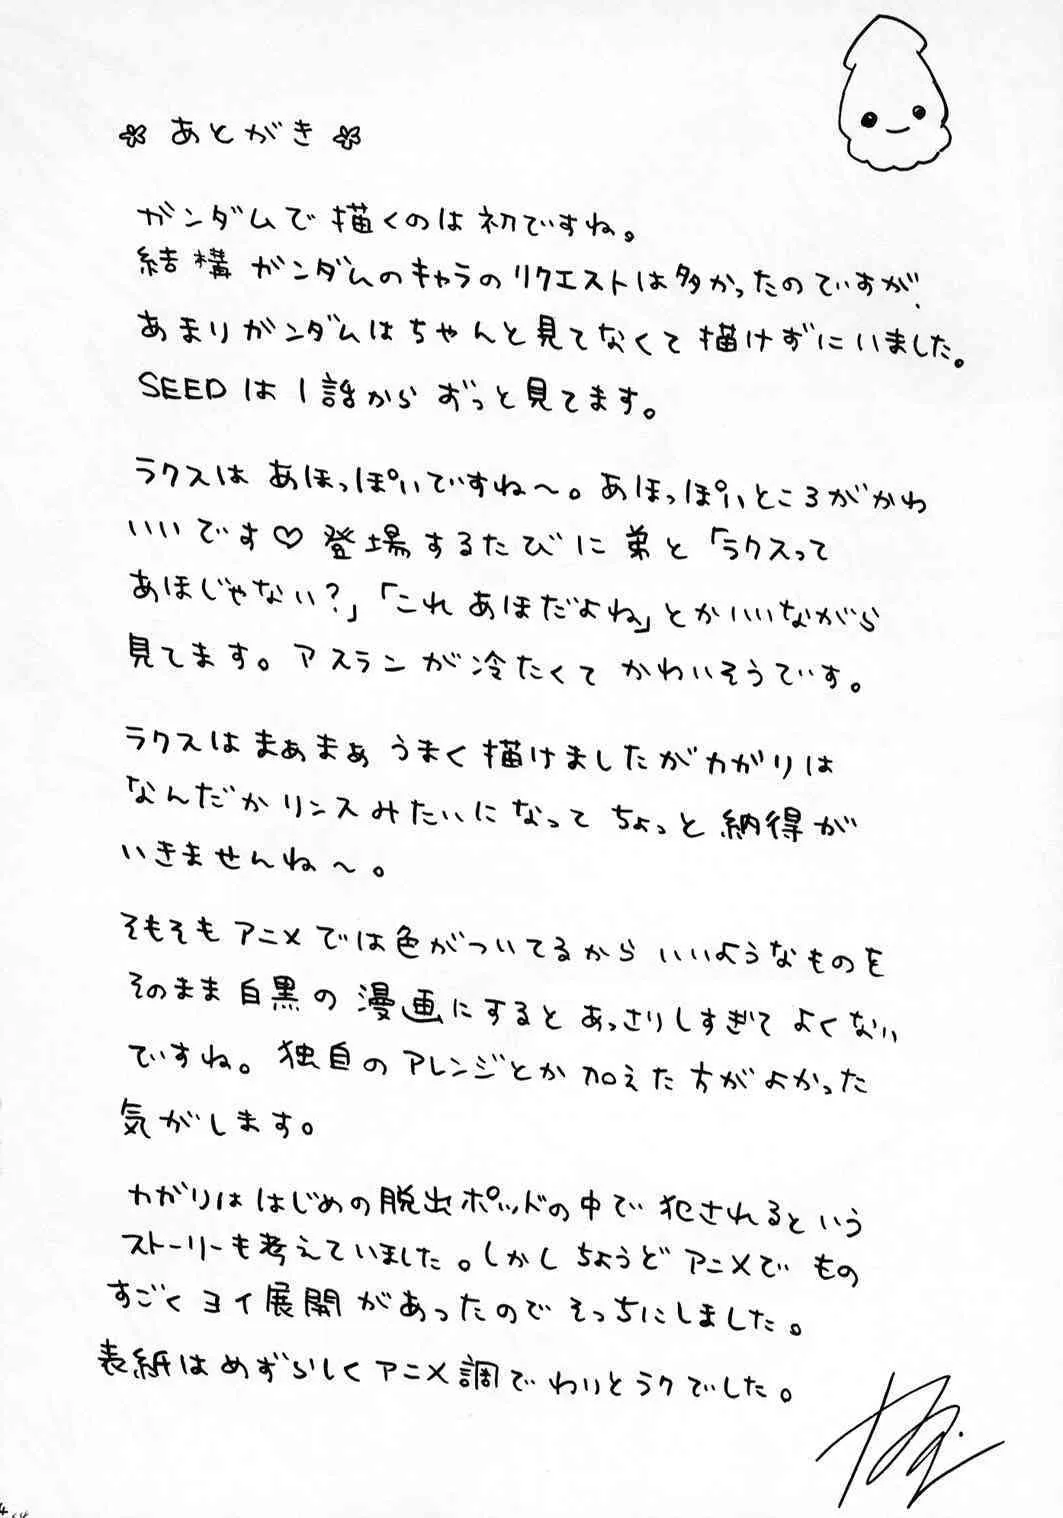 あとがき
ガンダムで描くのは初ですね。
結構ガンダムのキャラのリクエストは多かったのですが、
あまりガンダムはちゃんと見てなくて描けずにいました。
SEEDは1話からずっと見てます。
ラクスはあほっぽいですね～。あほっぽいところがかわ
いいです♡登場するたびに弟と「ラクスって
あほじゃない?」「これあほだよね」とかいいながら
見てます。アスランが冷たくてかわいそうです。
ラクスはまぁまぁうまく描けましたがカガリは
なんだかリンスみたいになってちょっと納得が
いきませんね～。
そもそもアニメでは色がついてるからいいようなものを
そのまま白黒の漫画にするとあっさりしすぎてよくない
ですね。独自のアレンジとか加えた方がよかった
気がします。
カガリははじめの脱出ポッドの中で犯されるという
ストーリーも考えていました。しかしちょうどアニメでもの
すごくヨイ展開があったのでそっちにしました。
表紙はめずらしくアニメ調でわりとラクでした。